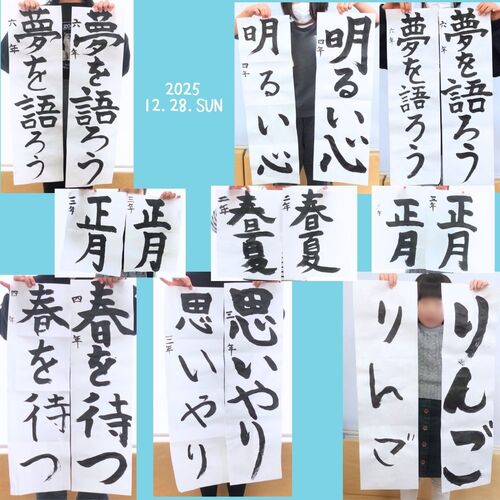 六年
夢を語ろう
六年
夢を語ろう
2025
12.28.SUN
四年
明るい心
四年
明るい心
六年
夢を語ろう
六年
夢を語ろう
三年
正月
三年
正月
二年
春夏
二年
春夏
正月
正月
四年
春を待つ
四年
春を待つ
三年
思いやり
三年
思いやり
りんご
りんご